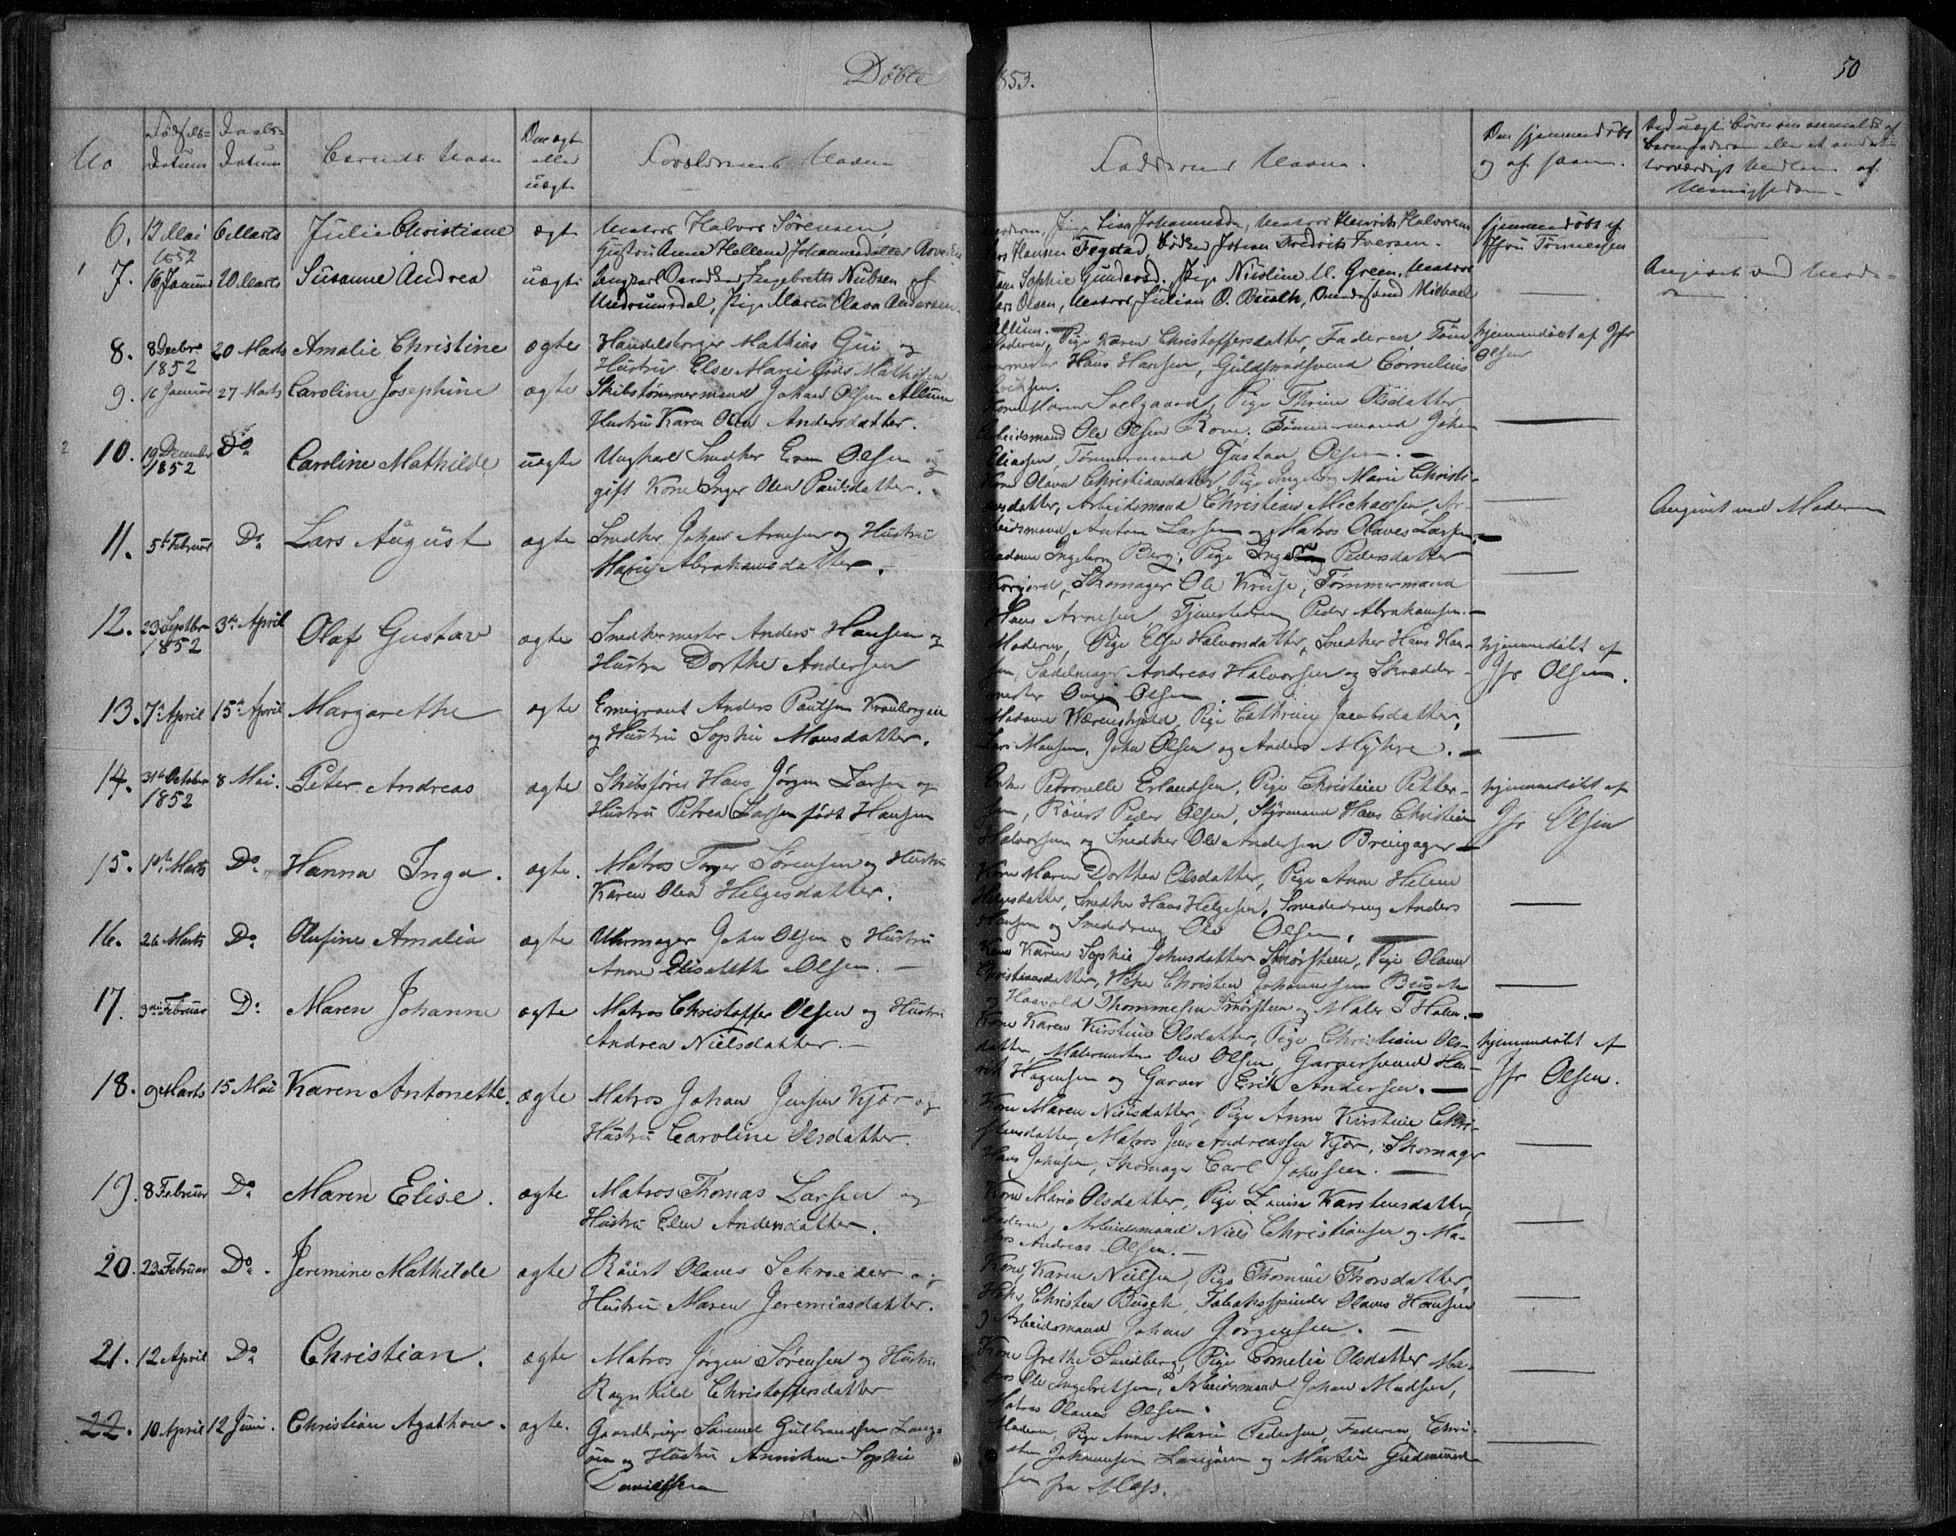 Døbte 1853.
50
No
Fødsels-
Datum
Daabs-
Datum
Barnets Navn
Om ægte
eller
uægte
Forældrenes Navne
Faddernes Navne.
Om hjemmedøbt
og af hvem.
6. 12 Mai 1852 6 Marts Julie Christiane ægte Matros Halvor Sørensen,
Hustru Anne Hellene Johannesdatter
Pige Lina Johannesdr, Matros Henrik Halvorsen
Hansen Fogstad, Johan Fredrik Iversen.
hjemmedøbt af
Jfru Tønnesen
7. 16 Januar 20 Marts Susanne Andrea uægte Ungkarl Ingebrett Nubsen af
Pige Maren Olava Andersen.
Sophie Gundersd, Pige Nicoline M. Green, Matros
Lars Olsen, Matros Julian O. Bualk, Michael
Allum. —
Angivet ved Moderen
8. 8 Decbr 1852 20 Marts Amalie Christine ægte Handelsborger Mathias Gui og
Hustru Else Marie født Mathisen
Moderen, Pige Karen Christoffersdatter, Faderen, Tøm-
mermester Hans Hansen, Guldsmedsvend Cornelius
Eriksen.
hjemmedøbt af Jfr
Olsen
9. 16 Januar 27 Marts Caroline Josephine ægte Skibstømmermand Johan Olsen Allum
Hustru Karen Olea Andersdatter.
Kone Maren Solgaard, Pige Thrine Olsdatter,
Arbeidsmand Ole Olsen Rom, Tømmermand Johan
Eliasen, Tømmermand Gustav Olsen. —
10. 19 December 1852 Do Caroline Mathilde uægte Ungkarl Snedker Even Olsen og
gift Kone Inger Olea Paulsdatter.
Kone Olava Christiansdatter, Pige Ingeborg Marie Christi-
ansdatter, Arbeidsmand Christian Michaelsen, Ar-
beidsmand Anton Larsen og Matros Olaves Larsen. —
Angivet ved Moderen
11. 5te Februar Do Lars August ægte Snedker Johan Arnesen og Hustru
Maria Abrahamsdatter.
Madame Ingeborg Berg, Pige Pedersdatter
Skomager Ole Kruse, Tømmermand
Hans Arnesen, Tjenestedreng Peder Abrahamsen. —
12. 23 Septbr 1852 3die April Olaf Gustav ægte Snedkermester Anders Hansen og
Hustru Dorthe Andersen
Moderen, Pige Else Halvorsdatter, Snedker Hans Han-
sen, Sadelmager Andreas Halvorsen og Skrædder-
mester Ove Olsen. —
hjemmedøbt af
Jfr Olsen.
13. 7de April 15de April Margarethe ægte Emigrant Anders Paulsen Kronborgeie
og Hustru Sophie Monsdatter.
Madame Wærenskjold, Pige Cathrine Jacobsdatter,
Lars Monsen, John Olsen og Anders Myhre. —
14. 31te October 1852 8 Mai. Peter Andreas ægte Skibsfører Hans Jørgen Larsen og
Hustru Petrea Larsen født Hansen
Enke Petronelle Erlandsen, Pige Christine Petter-
sen, Røiert Peder Olsen, Styrmand Hans Christian
Halvorsen og Snedker Ole Andersen Breigager —
hjemmedøbt af
Jfr Olsen
15. 10de Marts Do Hanna Inga. ægte. Matros Torger Sørensen og Hustru
Karen Olea Helgesdatter.
Kone Maren Dorthea Olsdatter, Pige Anne Helene
Helgesdatter, Snedker Hans Helgesen, Smededreng Anders
Hansen og Smededreng Ole Olsen.
16. 26 Marts Do Olufine Amalia ægte Uhrmager John Olsen og Hustru
Anne Elisabeth Olsen. —
Kone Karen Sophie Johnsdatter Smørsteen, Pige Olava
Christiansdatter, Høker Christen Johannesen Busch
og Haavold Thommesen Smørsteen og Maler T Holm. —
17. 3die Februar Do Maren Johanne ægte Matros Christoffer Olsen og Hustru
Andrea Nielsdatter. —
Kone Karen Kirstine Olsdatter, Pige Christiane Ols-
datter, Malermester Ove Olsen, Garversvend Hen-
rik Hagensen og Garver Erik Andersen. —
hjemmedøbt af
Jfr Olsen.
18. 9 Marts 15 Mai Karen Antonette. ægte Matros Johan Jensen Kjør og
Hustru Caroline Olsdatter.
Kone Maren Nielsdatter, Pige Anne Kirstine Chri-
stensdatter, Matros Jens Andreassen Kjør, Skomager
Hans Johnsen, Skomager Carl Johnsen. —
19. 8 Februar Do Maren Elise. ægte Matros Thomas Larsen og
Hustru Elen Andersdatter.
Kone Maria Olsdatter, Pige Lovise Karstensdatter,
Faderen, Arbeidsmand Niels Christiansen og Ma-
tros Andreas Olsen. —
20. 23 Februar Do. Jeremine Mathilde ægte Røiert Olaves Schrøder og
Hustru Maren Jeremiasdatter.
Kone Karen Nielsen, Pige Thomine Thorsdatter
Høker Christen Busch, Tobakspinder Olaves Hansen
og Arbeidsmand Johan Jørgensen. —
21. 12 April Do Christian. ægte Matros Jørgen Sørensen og Hustru
Ragnhild Christoffersdatter
Kone Grethe Sandberg, Pige Cornelia Olsdatter Ma-
tros Ole Ingebretsen, Arbeidsmand Johan Madsen,
Matros Olaves Olsen.
22. 10 April 12 Juni. Christian Agathon. ægte. Gaardbruger Samuel Gulbrandsen Lang-
øen og Hustru Anniken Sophie
Danielsen
Moderen, Pige Anne Marie Pedersen, Faderen, Chri-
stian Johannsen Langøen og Martin Gudmund-
sen fra Moss.